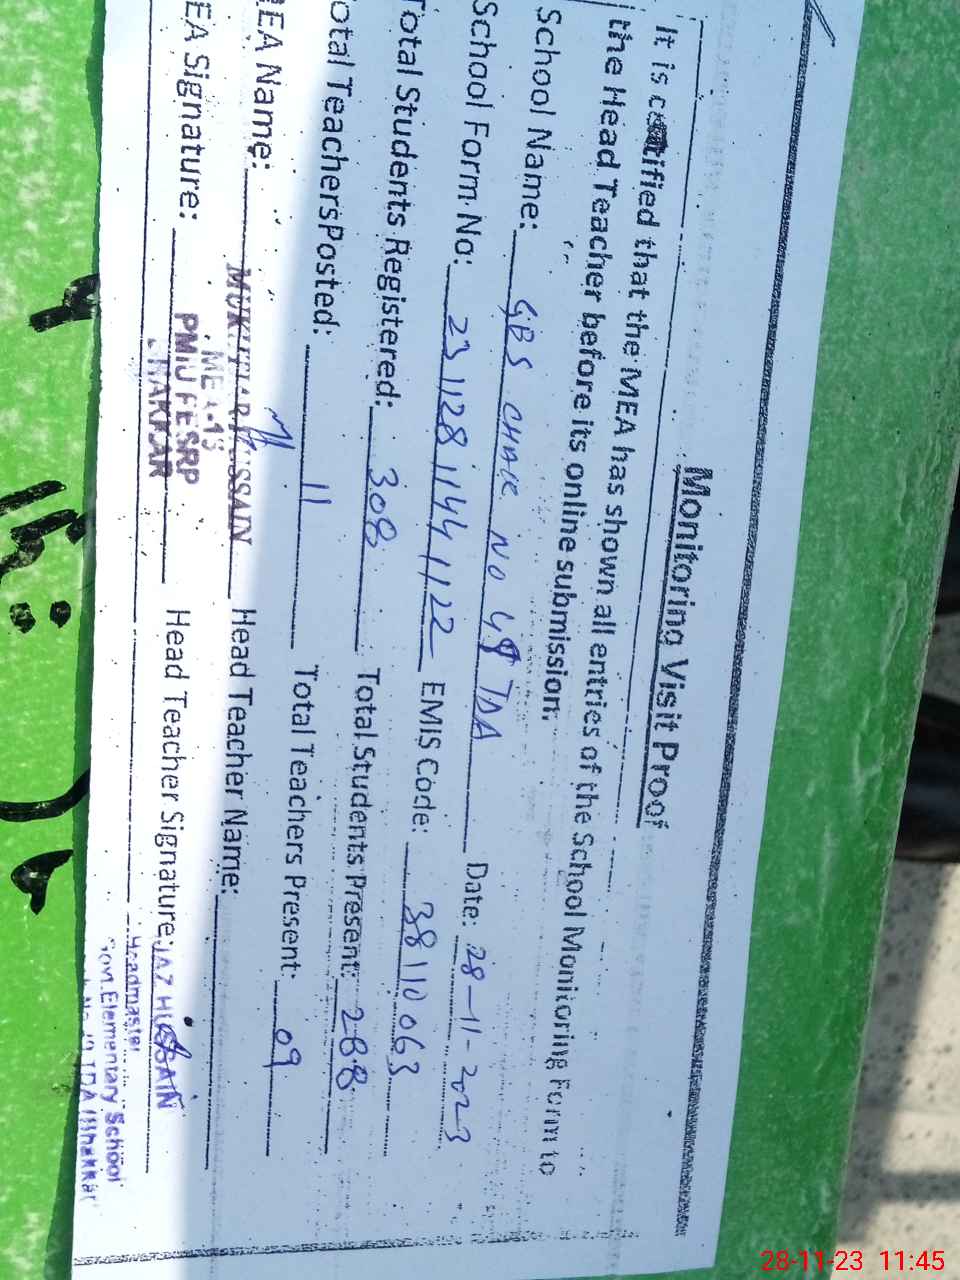 Monitoring Visit Proof
It is certified that the MEA has shown all entries of the School Monitoring Form to
the Head Teacher before its online submission.
School Name: GBS CHAK NO 49 TDA Date: 28-11-2023
School Form No: 23112811441122 EMIS Code: 38110063
Total Students Registered: 308 Total Students Present: 288
otal TeachersPosted: 11 Total Teachers Present: 09
EA Name: MUKHTIAR HUSSAIN Head Teacher Name:
EA Signature: Head Teacher Signature: JAZ HUSSAIN
PMIU PESRP
Headmaster
Govt. Elementary School
TDA Bhakkar
28-11-23 11:45